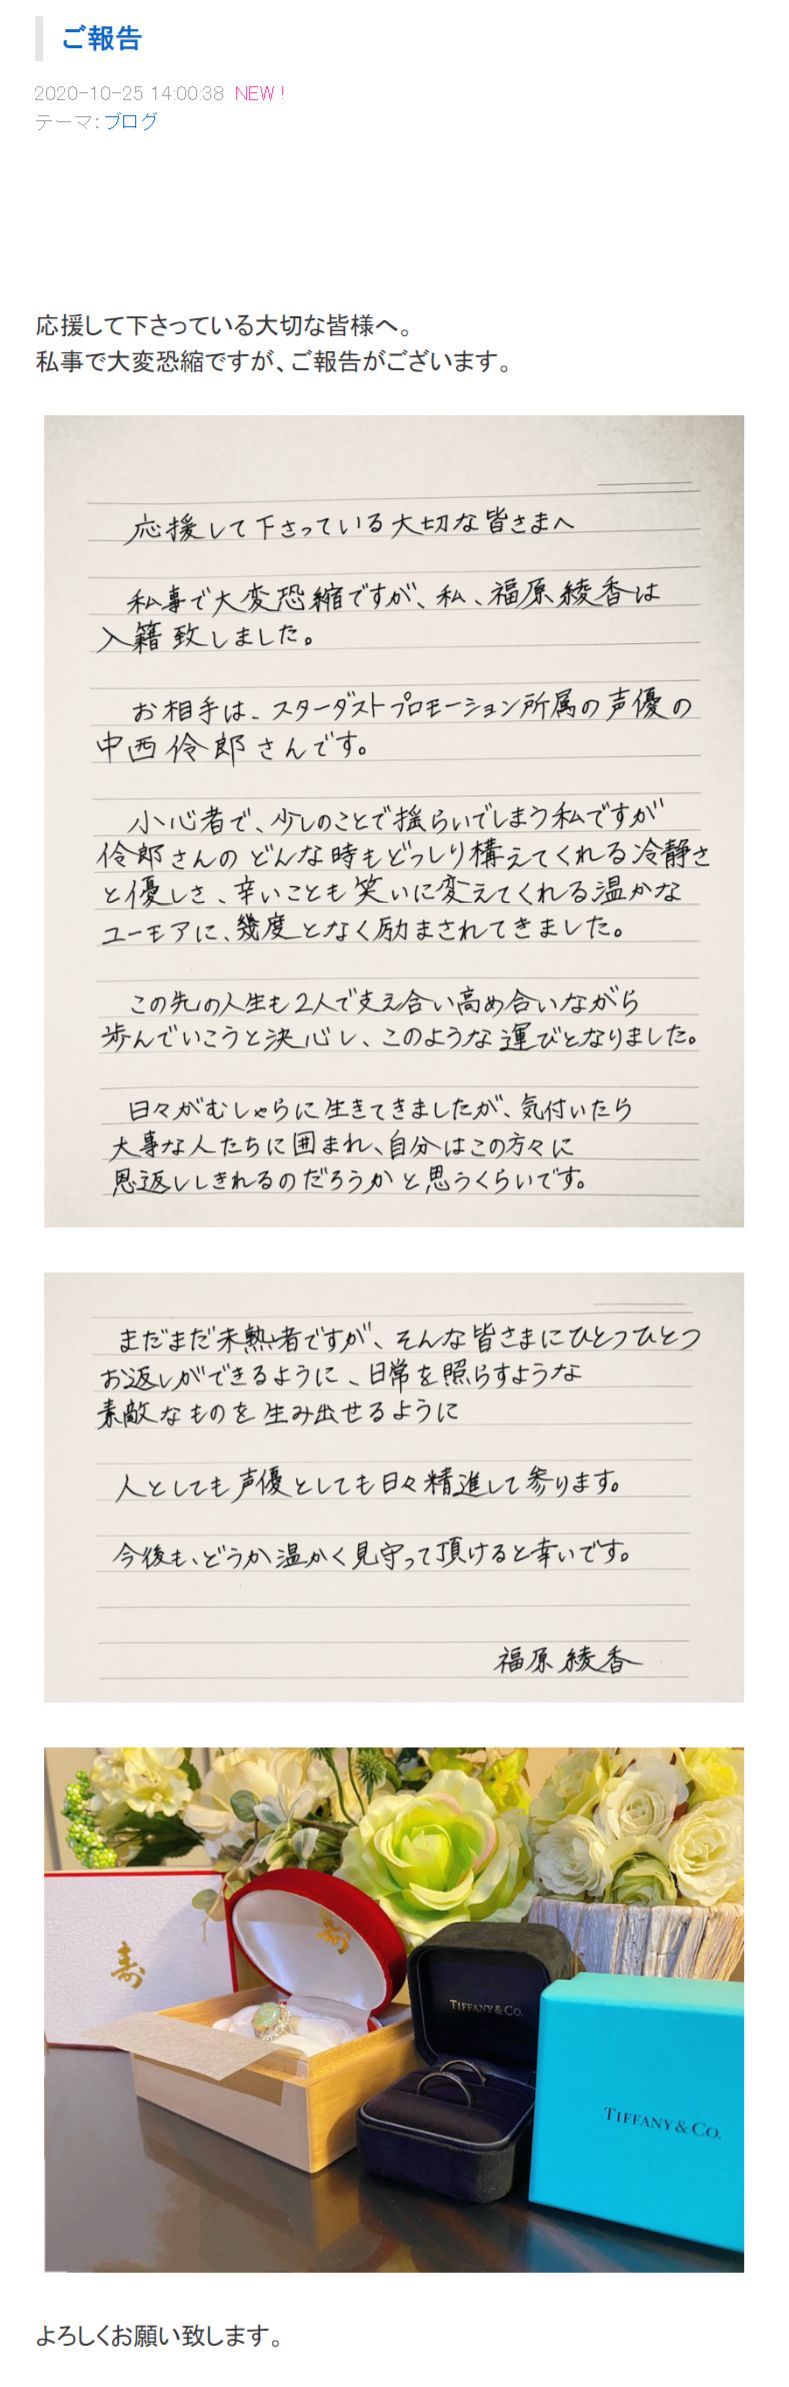 ご報告
2020-10-25 14:00:38 NEW !
テーマ：ブログ
応援して下さっている大切な皆様へ。
私事で大変恐縮ですが、ご報告がございます。
応援して下さっている大切な皆さまへ
私事で大変恐縮ですが、私、福原綾香は
入籍致しました。
お相手は、スターダストプロモーション所属の声優の
中西伶郎さんです。
小心者で、少しのことで揺らいでしまう私ですが
伶郎さんのどんな時もどっしり構えてくれる冷静さ
と優しさ、辛いことも笑いに変えてくれる温かな
ユーモアに、幾度となく励まされてきました。
この先の人生も2人で支え合い高め合いながら
歩んでいこうと決心し、このような運びとなりました。
日々がむしゃらに生きてきましたが、気付いたら
大事な人たちに囲まれ、自分はこの方々に
恩返ししきれるのだろうかと思うくらいです。
まだまだ未熟者ですが、そんな皆さまにひとつひとつ
お返しができるように、日常を照らすような
素敵なものを生み出せるように
人としても声優としても日々精進して参ります。
今後も、どうか温かく見守って頂けると幸いです。
福原綾香
寿
寿
TIFFANY & CO.
TIFFANY & CO.
よろしくお願い致します。